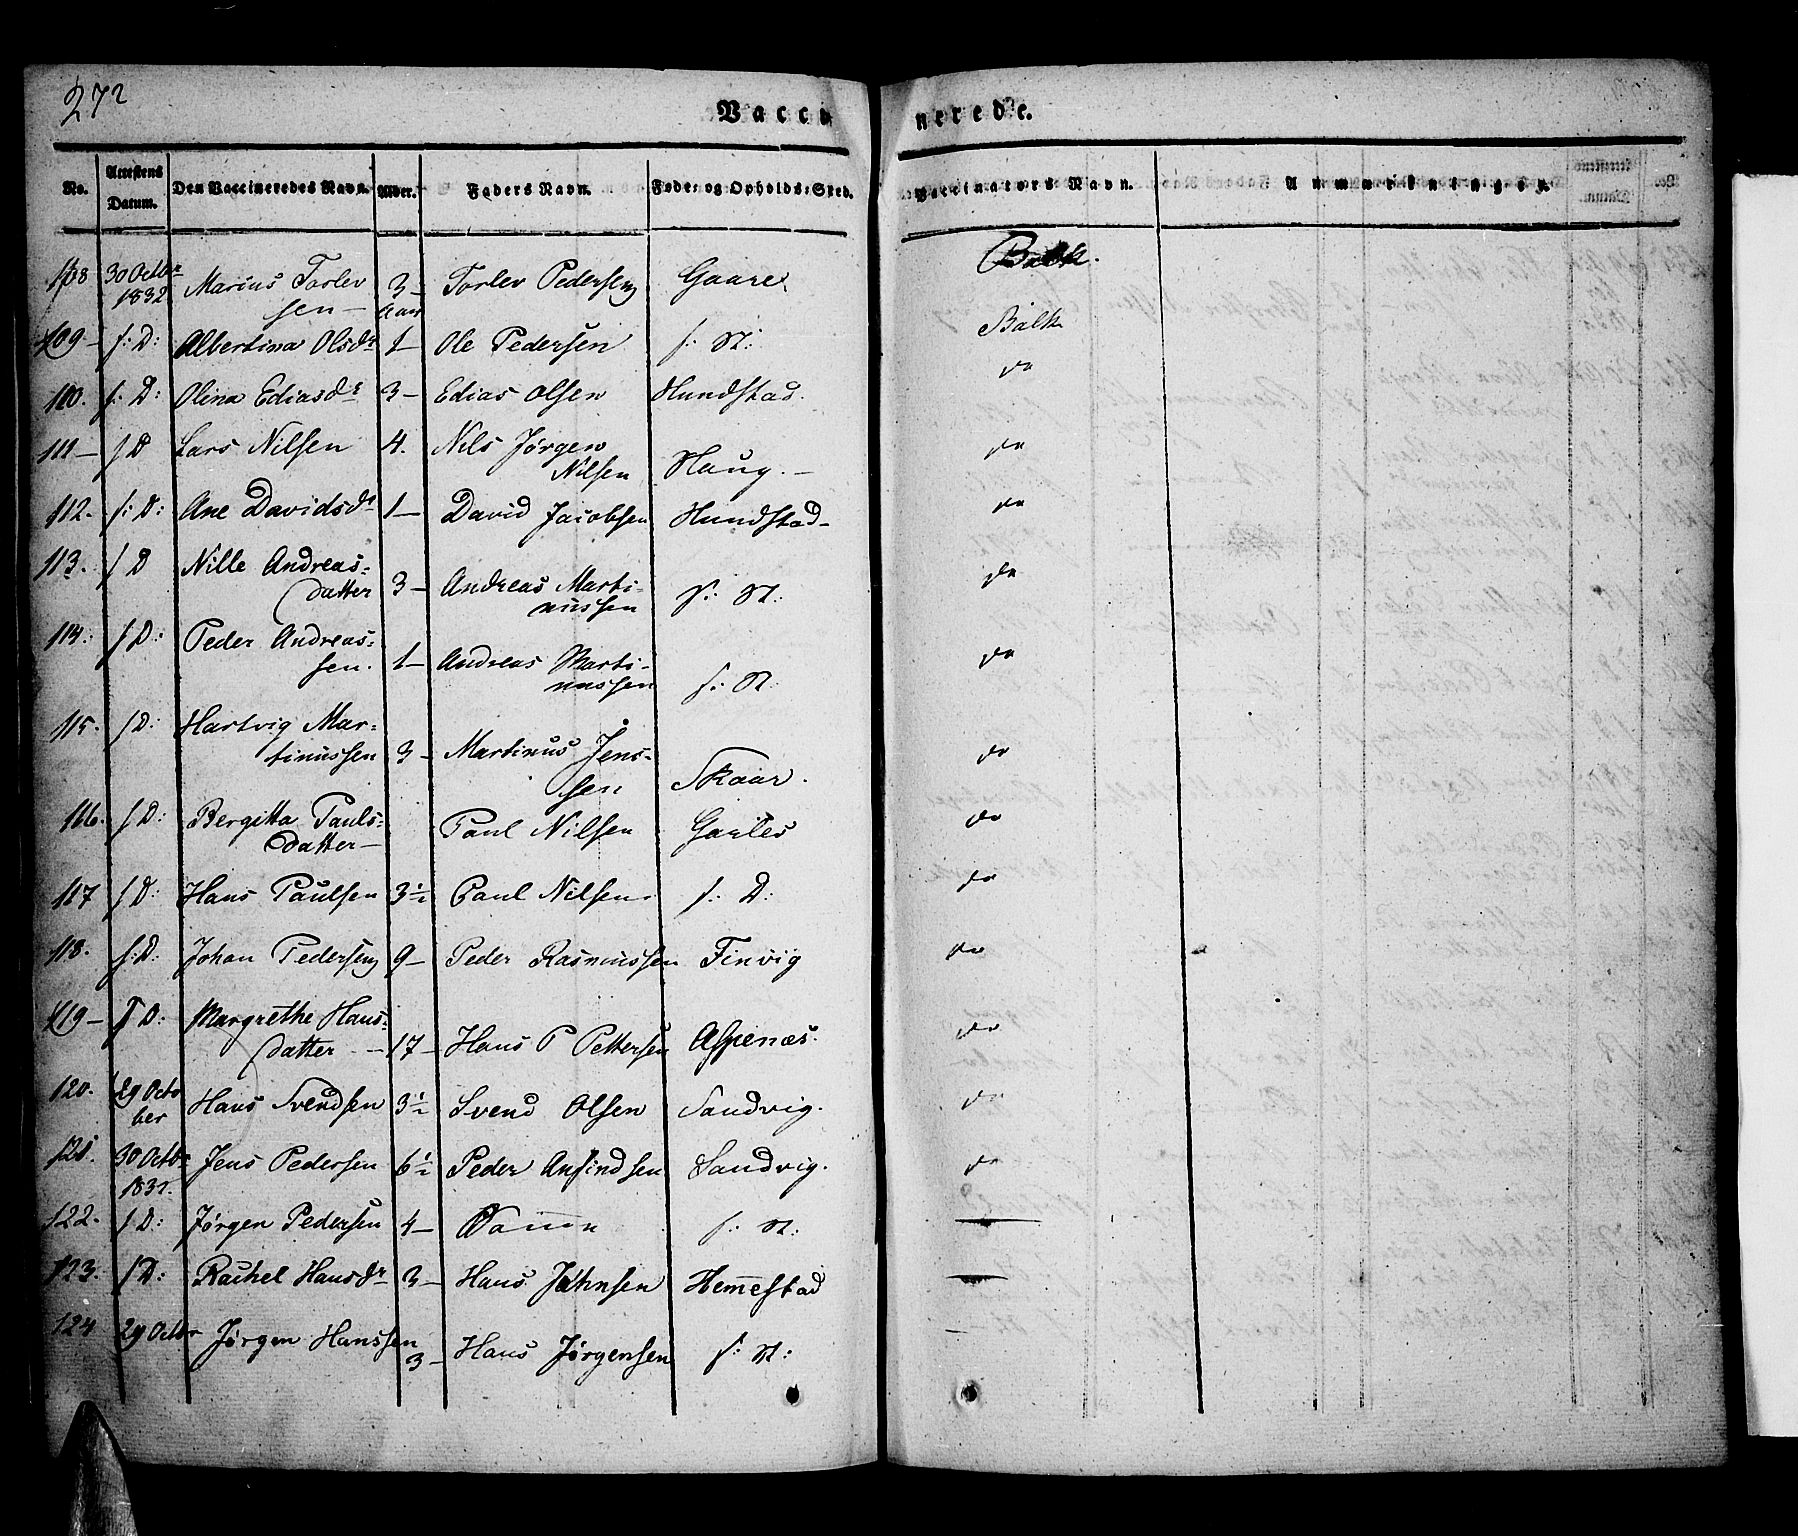 272
Vaccinerede.
No. Attestens Datum. Den Vaccineredes Navn. Alder. Faders Navn. Føde- og Opholds-Sted. Vaccinators Navn. Anmærkninger.
108 30 Octbr 1832 Marius Torlevsen 3 Aar Torlev Pedersen Gaare Balk.
109 f: D: Albertina Olsdr 1 Ole Pedersen f: St: Balk
110. f: D: Olina Ediasdr 3 Edias Olsen Hundstad. do
111 f D Lars Nilsen 4. Nils Jørgen Nilsen Haug. do
112. f: D: Ane Davidsdr 1 David Jacobsen Hundstad do
113. f D Nille Andreasdatter 3 Andreas Martinussen f: St: do
114. f D: Peder Andreassen. 1 Andreas Martinussen f: St: do
115. f D: Hartvig Martinussen 3 Martinus Jenssen Skaar. do
116. f D: Bergitta Paulsdatter Paul Nilsen do
117 f D: Hans Paulsen 3½ Paul Nilsen f: D: do
118. f: D: Johan Pedersen 9 Peder Rasmussen Finvig do
119 f D: Margrethe Hansdatter 17 Hans P Pettersen Aspenæs. do
120. 29 October Hans Svendsen 3½ Svend Olsen Sandvig. do
121. 30 Octbr 1832. Jens Pedersen 6½ Peder Anfindsen Sandvig. do
122. f D: Jørgen Pedersen 4 f: St: —
123. f D: Rachel Hansdr 3 Hans Johnsen Hemestad —
124 29 Octbr Jørgen Hanssen 3 Hans Jørgensen f: St: —